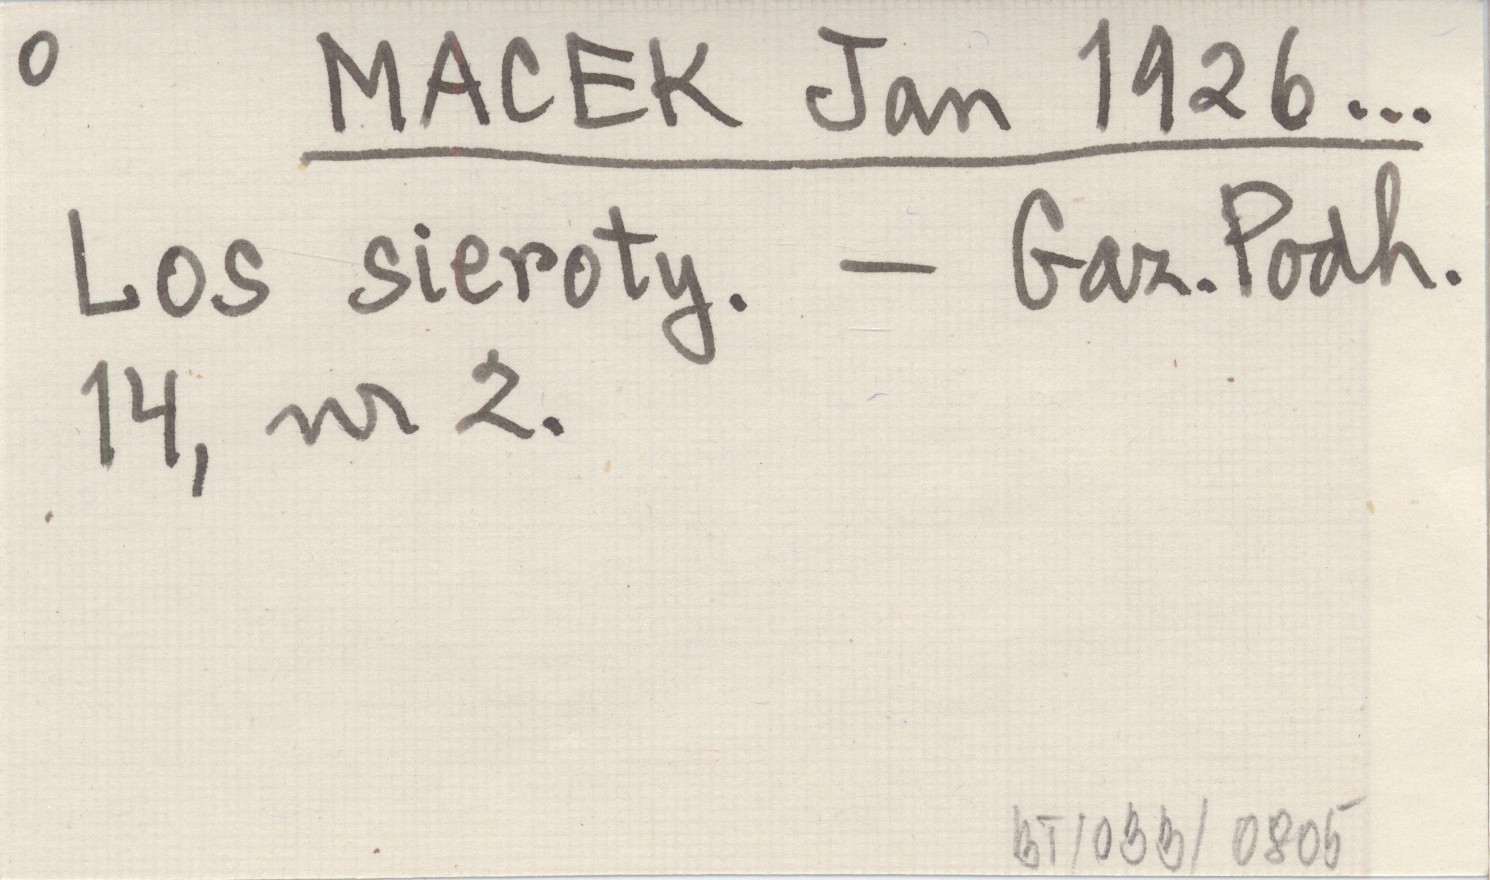 o MACEK Jan 1926...
Los sieroty. — Gaz. Podh.
14, nr 2.
BT/033/0805